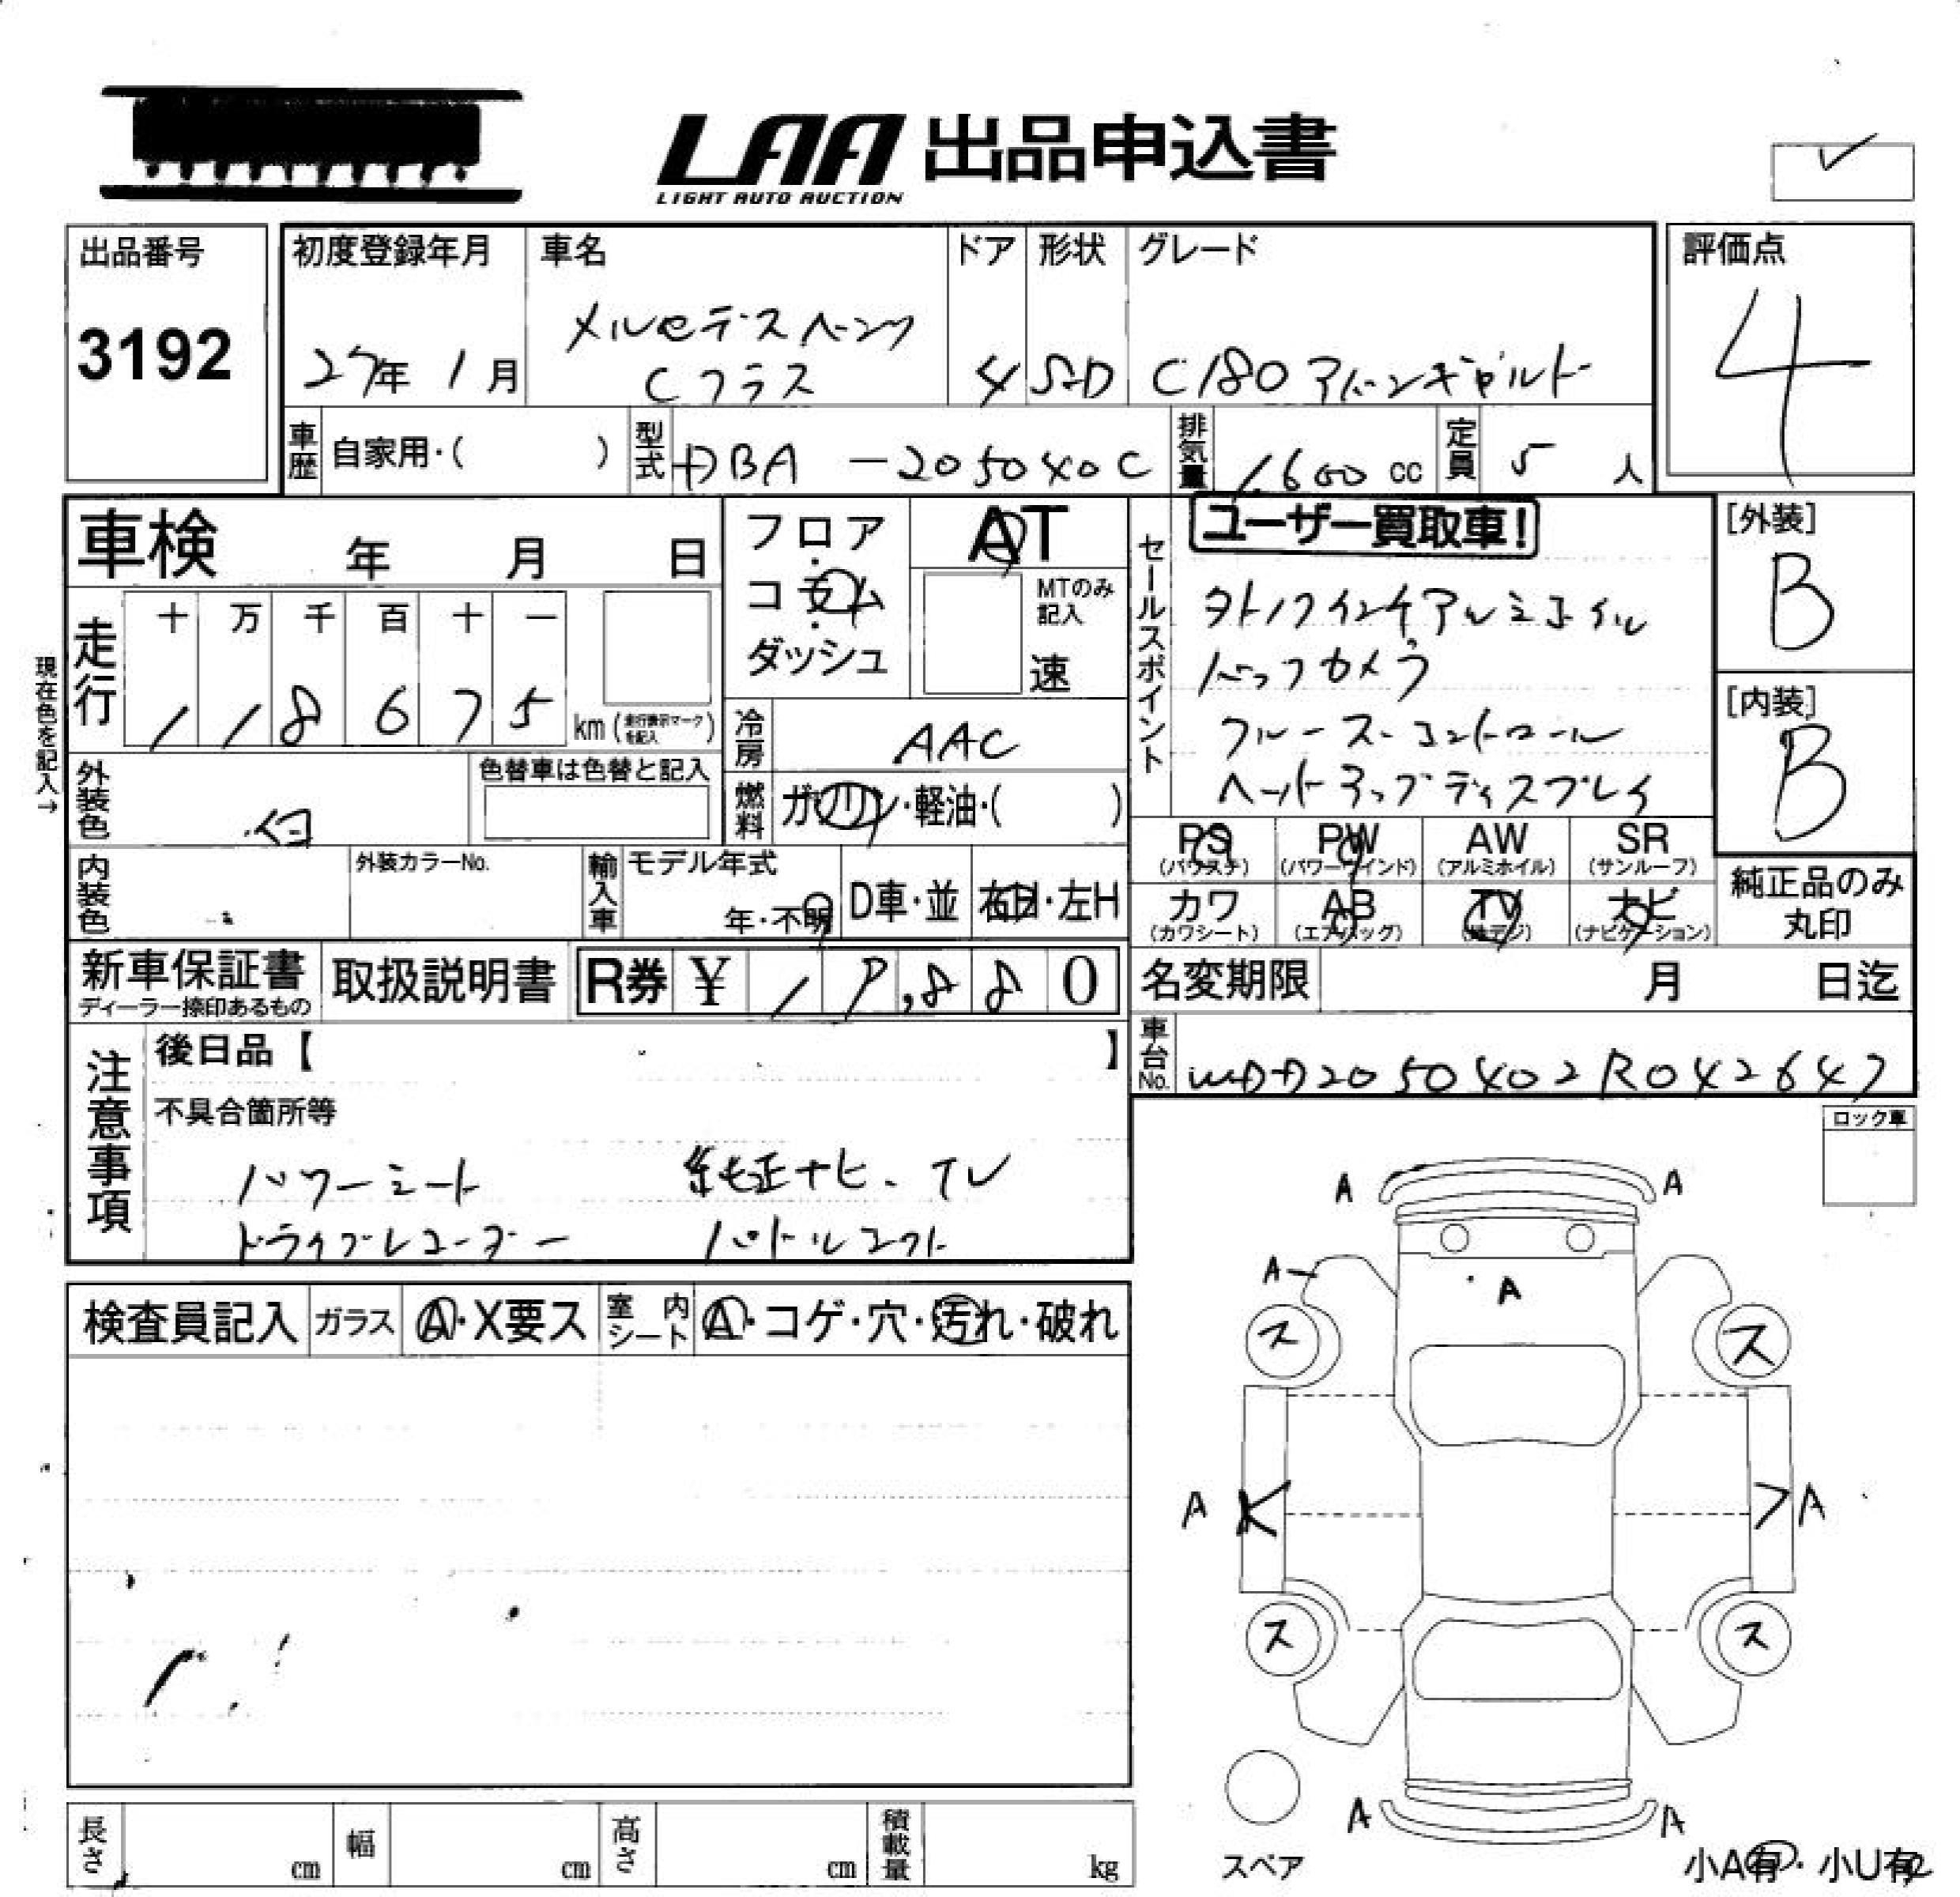 LAA 出品申込書
LIGHT AUTO AUCTION
出品番号
3192
初度登録年月
27年 1月
車名
メルセデスベンツ
Cクラス
ドア
4
形状
SD
グレード
C180 アバンギャルド
評価点
4
車歴 自家用・( )
型式 DBA-205040C
排気量 1,600 cc
定員 5 人
車検 年 月 日
フロア・コラム・ダッシュ
AT
MTのみ記入
速
セールスポイント
ユーザー買取車!
外17インチアルミホイル
バックカメラ
クルーズコントロール
ヘッドアップディスプレイ
[外装]
B
[内装]
B
現在色を記入→
走行
十 万 千 百 十 一
1 1 8 6 7 5 km (走行表示マークを記入)
冷房 AAC
外装色 白
色替車は色替と記入
燃料 ガソリン・軽油・( )
PS (パワステ)
PW (パワーウインド)
AW (アルミホイル)
SR (サンルーフ)
カワ (カワシート)
AB (エアバッグ)
TV (地デジ)
ナビ (ナビゲーション)
純正品のみ丸印
内装色
外装カラーNo.
輸入車
モデル年式
年・不明
D車・並
右H・左H
新車保証書
ディーラー捺印あるもの
取扱説明書
R券 ¥ 19,880
名変期限 月 日迄
車台No. WDD2050402R042647
注意事項
後日品【 】
不具合箇所等
パワーシート 純正ナビ、TV
ドライブレコーダー パドルシフト
ロック車
検査員記入
ガラス A・X要ス
室内シート A・コゲ・穴・汚れ・破れ
A A
A
A
ス ス
A A
ス ス
A A
スペア
小A有・小U有
長さ cm
幅 cm
高さ cm
積載量 kg